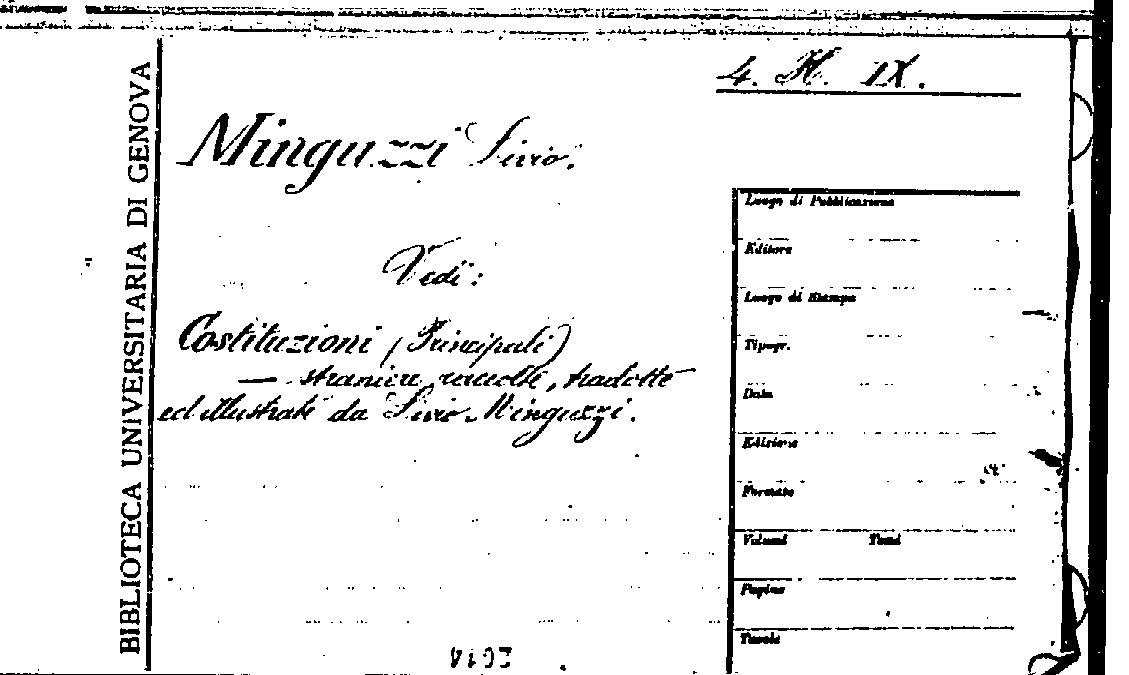 BIBLIOTECA UNIVERSITARIA DI GENOVA
4. H. IX.
Minguzzi Livio.
Vedi:
Costituzioni (Principali)
— straniere, raccolte, tradotte
ed illustrate da Livio Minguzzi.
Luogo di Pubblicazione
Editore
Luogo di Stampa
Tipogr.
Data
Edizione
Formato
Volumi Tomi
Pagine
Tavole